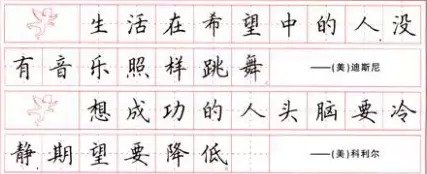 生活在希望中的人没
有音乐照样跳舞 ——(美)迪斯尼
想成功的人头脑要冷
静期望要降低 ——(美)科利尔